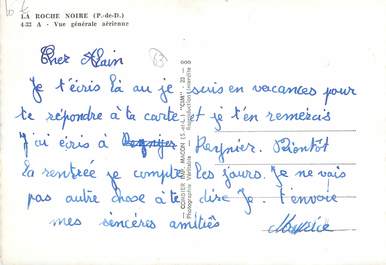 LA ROCHE NOIRE (P.-de-D.)
4-23 A - Vue générale aérienne
63
Cher Alain
Je t'écris là au je suis en vacances pour
te répondre à ta carte et je t'en remercis
J'ai écris à Regnier. Bientôt
la rentrée je compte les jours. Je ne vais
pas autre chose à te dire Je t'envoie
mes sincéres amitiés
COMBIER IMP. MACON (S.-et-L.) "CIM"
Photographie Véritable - Reproduction interdite